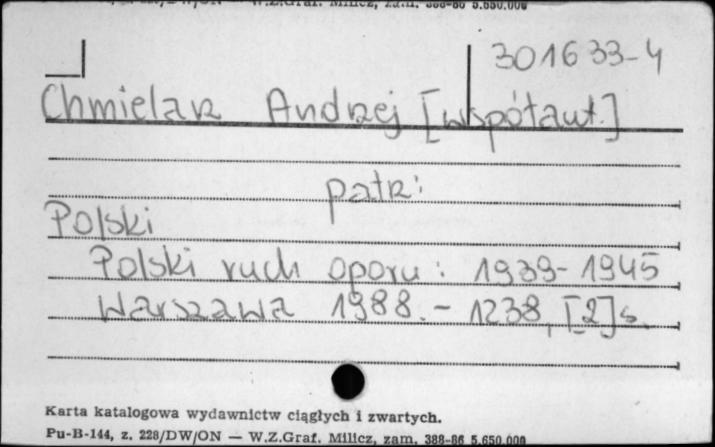 W.Z.Graf. Milicz, zam. 388-86 5.650.000
301633-4
Chmielarz Andrzej [współaut.]
patrz:
Polski
Polski ruch oporu : 1939-1945
Warszawa 1988. - 1238, [2] s.
Karta katalogowa wydawnictw ciągłych i zwartych.
Pu-B-144, z. 228/DW/ON — W.Z.Graf. Milicz, zam. 388-86 5.650.000